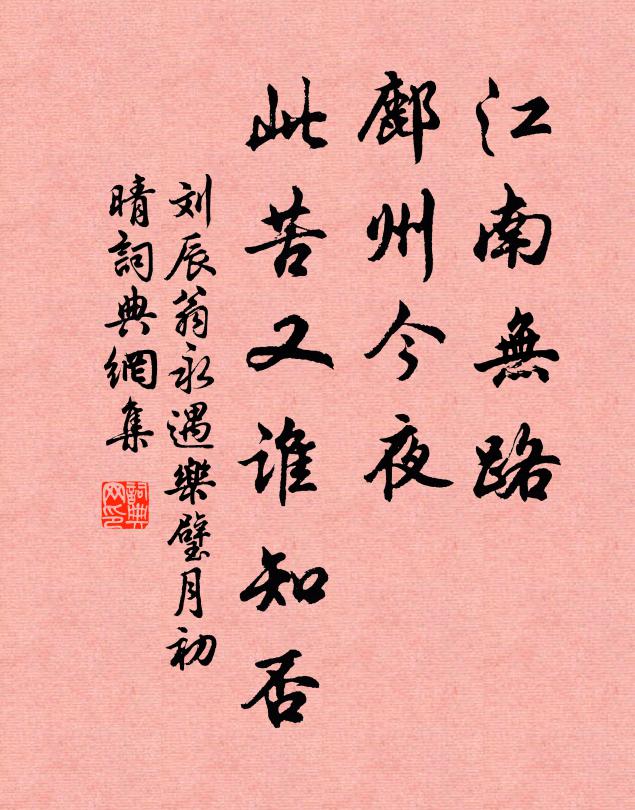 江南無路
鄜州今夜
此苦又谁知否
刘辰翁永遇樂璧月初
晴詞典網集
詞典网印